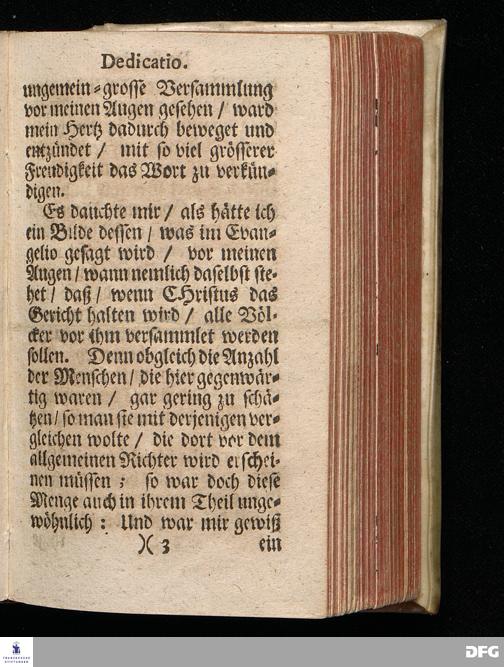 Dedicatio.
ungemein-grosse Versammlung
vor meinen Augen gesehen / ward
mein Hertz dadurch beweget und
entzündet / mit so viel grösserer
Freudigkeit das Wort zu verkün-
digen.
Es dauchte mir / als hätte ich
ein Bilde dessen / was im Evan-
gelio gesagt wird / vor meinen
Augen / wann nemlich daselbst ste-
het / daß / wenn CHristus das
Gericht halten wird / alle Völ-
cker vor ihm versammlet werden
sollen. Denn obgleich die Anzahl
der Menschen / die hier gegenwär-
tig waren / gar gering zu schä-
tzen / so man sie mit derjenigen ver-
gleichen wolte / die dort vor dem
allgemeinen Richter wird erschei-
nen müssen ; so war doch diese
Menge auch in ihrem Theil unge-
wöhnlich : Und war mir gewiß
)( 3 ein
FRANCKESCHE
STIFTUNGEN
DFG